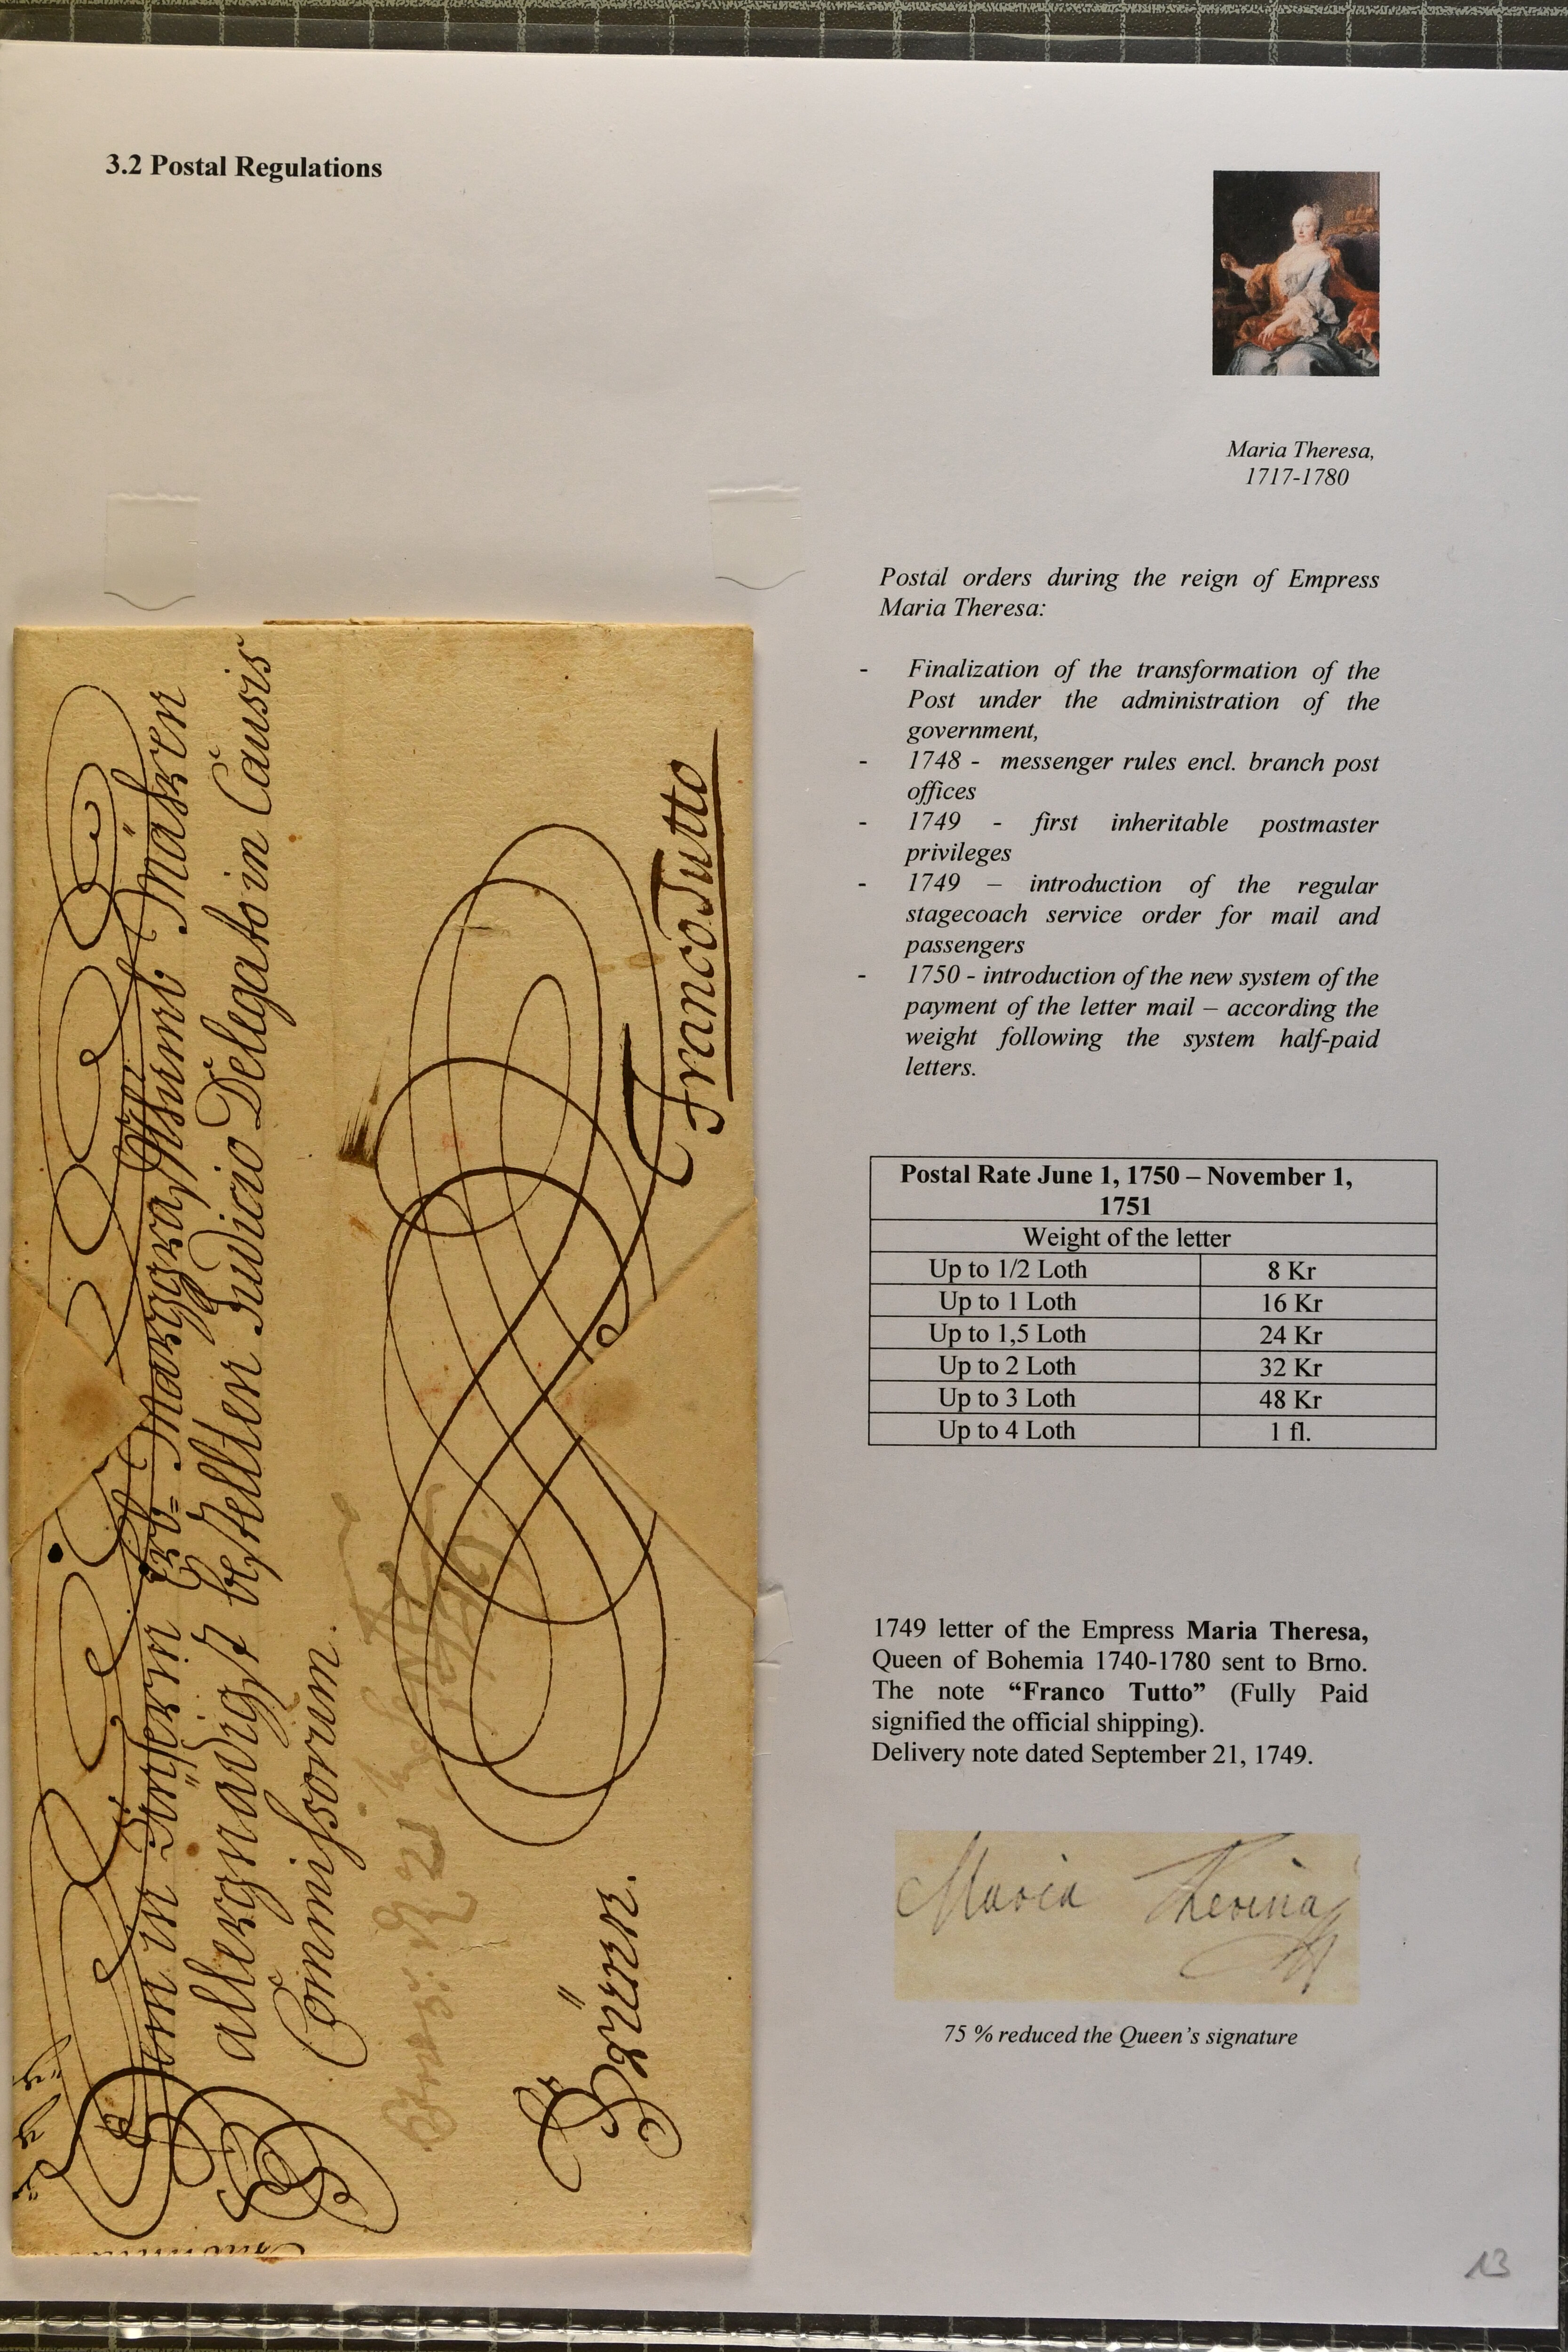 3.2 Postal Regulations
Maria Theresa,
1717-1780
Postal orders during the reign of Empress
Maria Theresa:
- Finalization of the transformation of the
Post under the administration of the
government,
- 1748 - messenger rules encl. branch post
offices
- 1749 - first inheritable postmaster
privileges
- 1749 – introduction of the regular
stagecoach service order for mail and
passengers
- 1750 - introduction of the new system of the
payment of the letter mail – according the
weight following the system half-paid
letters.
Postal Rate June 1, 1750 – November 1,
1751
Weight of the letter
Up to 1/2 Loth 8 Kr
Up to 1 Loth 16 Kr
Up to 1,5 Loth 24 Kr
Up to 2 Loth 32 Kr
Up to 3 Loth 48 Kr
Up to 4 Loth 1 fl.
1749 letter of the Empress Maria Theresa,
Queen of Bohemia 1740-1780 sent to Brno.
The note “Franco Tutto” (Fully Paid
signified the official shipping).
Delivery note dated September 21, 1749.
Maria Theresia
75 % reduced the Queen’s signature
13
in Erb= Marggraffthumb Mähren
allergnädigst bestellten Judicio Delegato in Causis
Commissorum.
21
1749
Brünn.
Franco Tutto